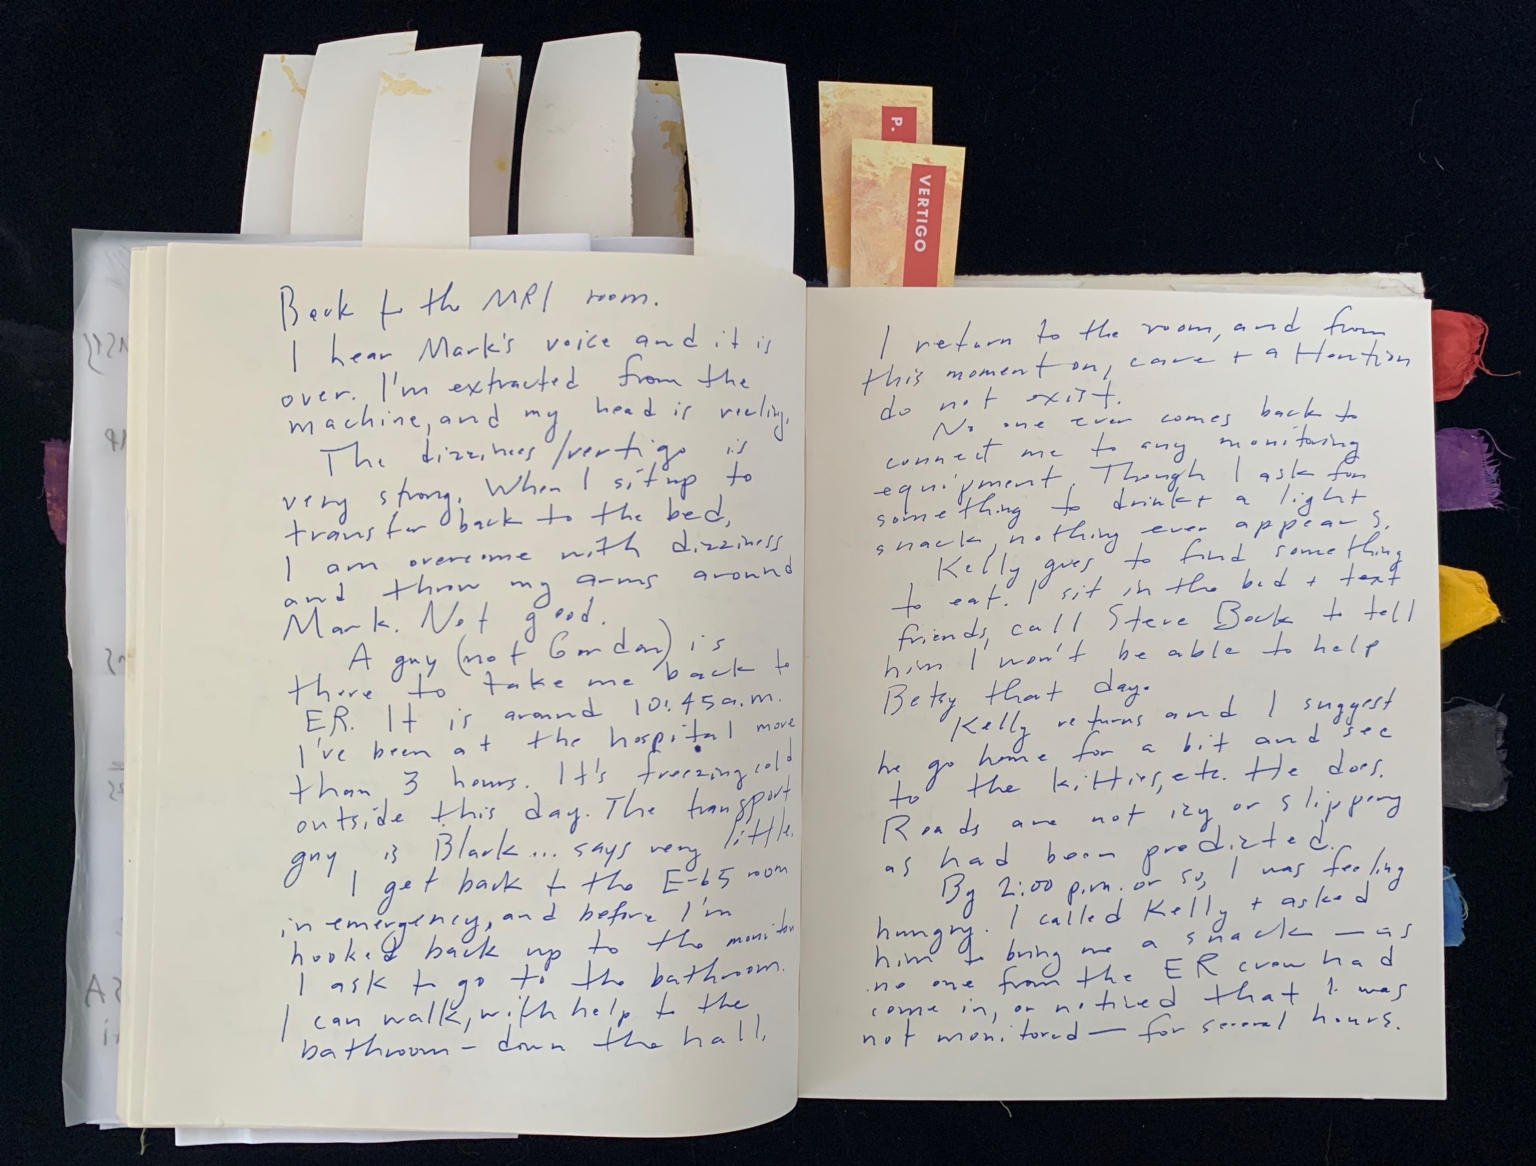 P.
VERTIGO
Back to the MRI room.
I hear Mark's voice and it is
over. I'm extracted from the
machine, and my head is reeling.
The dizziness/vertigo is
very strong. When I sit up to
transfer back to the bed,
I am overcome with dizziness
and throw my arms around
Mark. Not good.
A guy (not Gordon) is
there to take me back to
ER. It is around 10:45 a.m.
I've been at the hospital more
than 3 hours. It's freezing cold
outside this day. The transport
guy is Black... says very little.
I get back to the E-65 room
in emergency, and before I'm
hooked back up to the monitor
I ask to go to the bathroom.
I can walk, with help to the
bathroom – down the hall.
I return to the room, and from
this moment on, care + attention
do not exist.
No one ever comes back to
connect me to any monitoring
equipment. Though I ask for
something to drink + a light
snack, nothing ever appears.
Kelly goes to find something
to eat. I sit in the bed + text
friends, call Steve Bock to tell
him I won't be able to help
Betsy that day.
Kelly returns and I suggest
he go home for a bit and see
to the kitties, etc. He does.
Roads are not icy or slippery
as had been predicted.
By 2:00 p.m. or so, I was feeling
hungry. I called Kelly + asked
him to bring me a snack — as
no one from the ER crew had
come in, or noticed that I was
not monitored — for several hours.